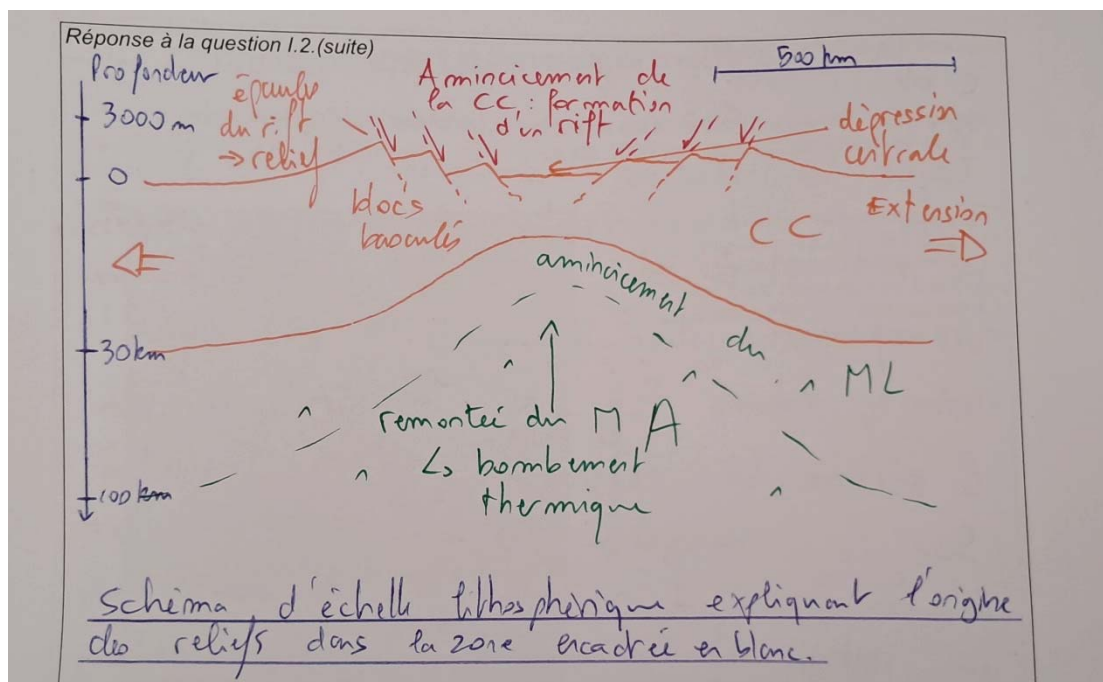 Réponse à la question I.2.(suite)
Profondeur
500 km
3000 m
0
30 km
100 km
épaules
du rift
→ relief
Amincicement de
la CC : formation
d'un rift
dépression
centrale
blocs
basculés
CC
Extension
amincicement du ML
remontée du MA
↳ bombement
thermique
Schéma d'échelle lithosphérique expliquant l'origine
des reliefs dans la zone encadrée en blanc.